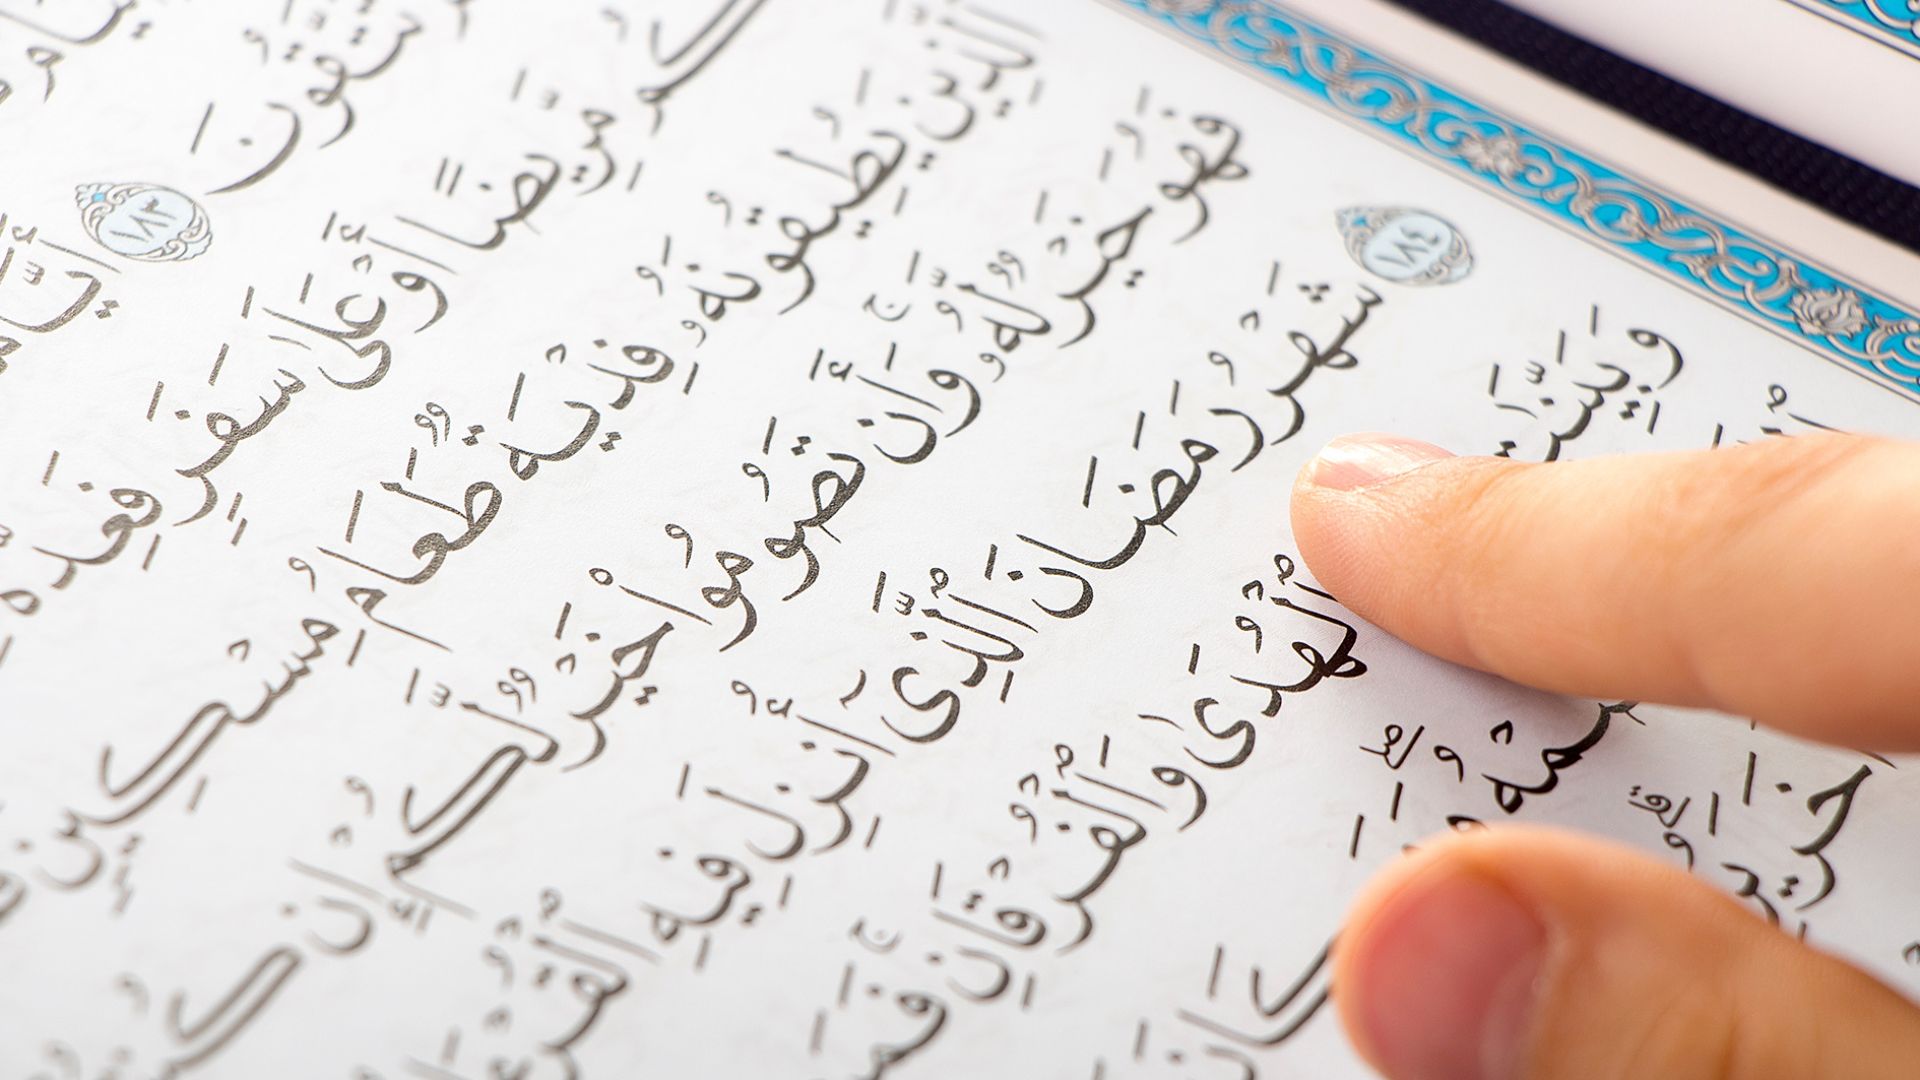 تَتَّقُونَ ١٨٣ أَيَّامًا
كُم مَّرِيضًا أَوْ عَلَىٰ سَفَرٍ فَعِدَّةٌ
ٱلَّذِينَ يُطِيقُونَهُۥ فِدْيَةٌ طَعَامُ مِسْكِينٍ
فَهُوَ خَيْرٌ لَّهُۥ ۚ وَأَن تَصُومُوا۟ خَيْرٌ لَّكُمْ إِن
١٨٤ شَهْرُ رَمَضَانَ ٱلَّذِىٓ أُنزِلَ فِيهِ ٱلْقُرْءَا
ٱلْهُدَىٰ وَٱلْفُرْقَانِ ۚ فَمَن
كَانَ